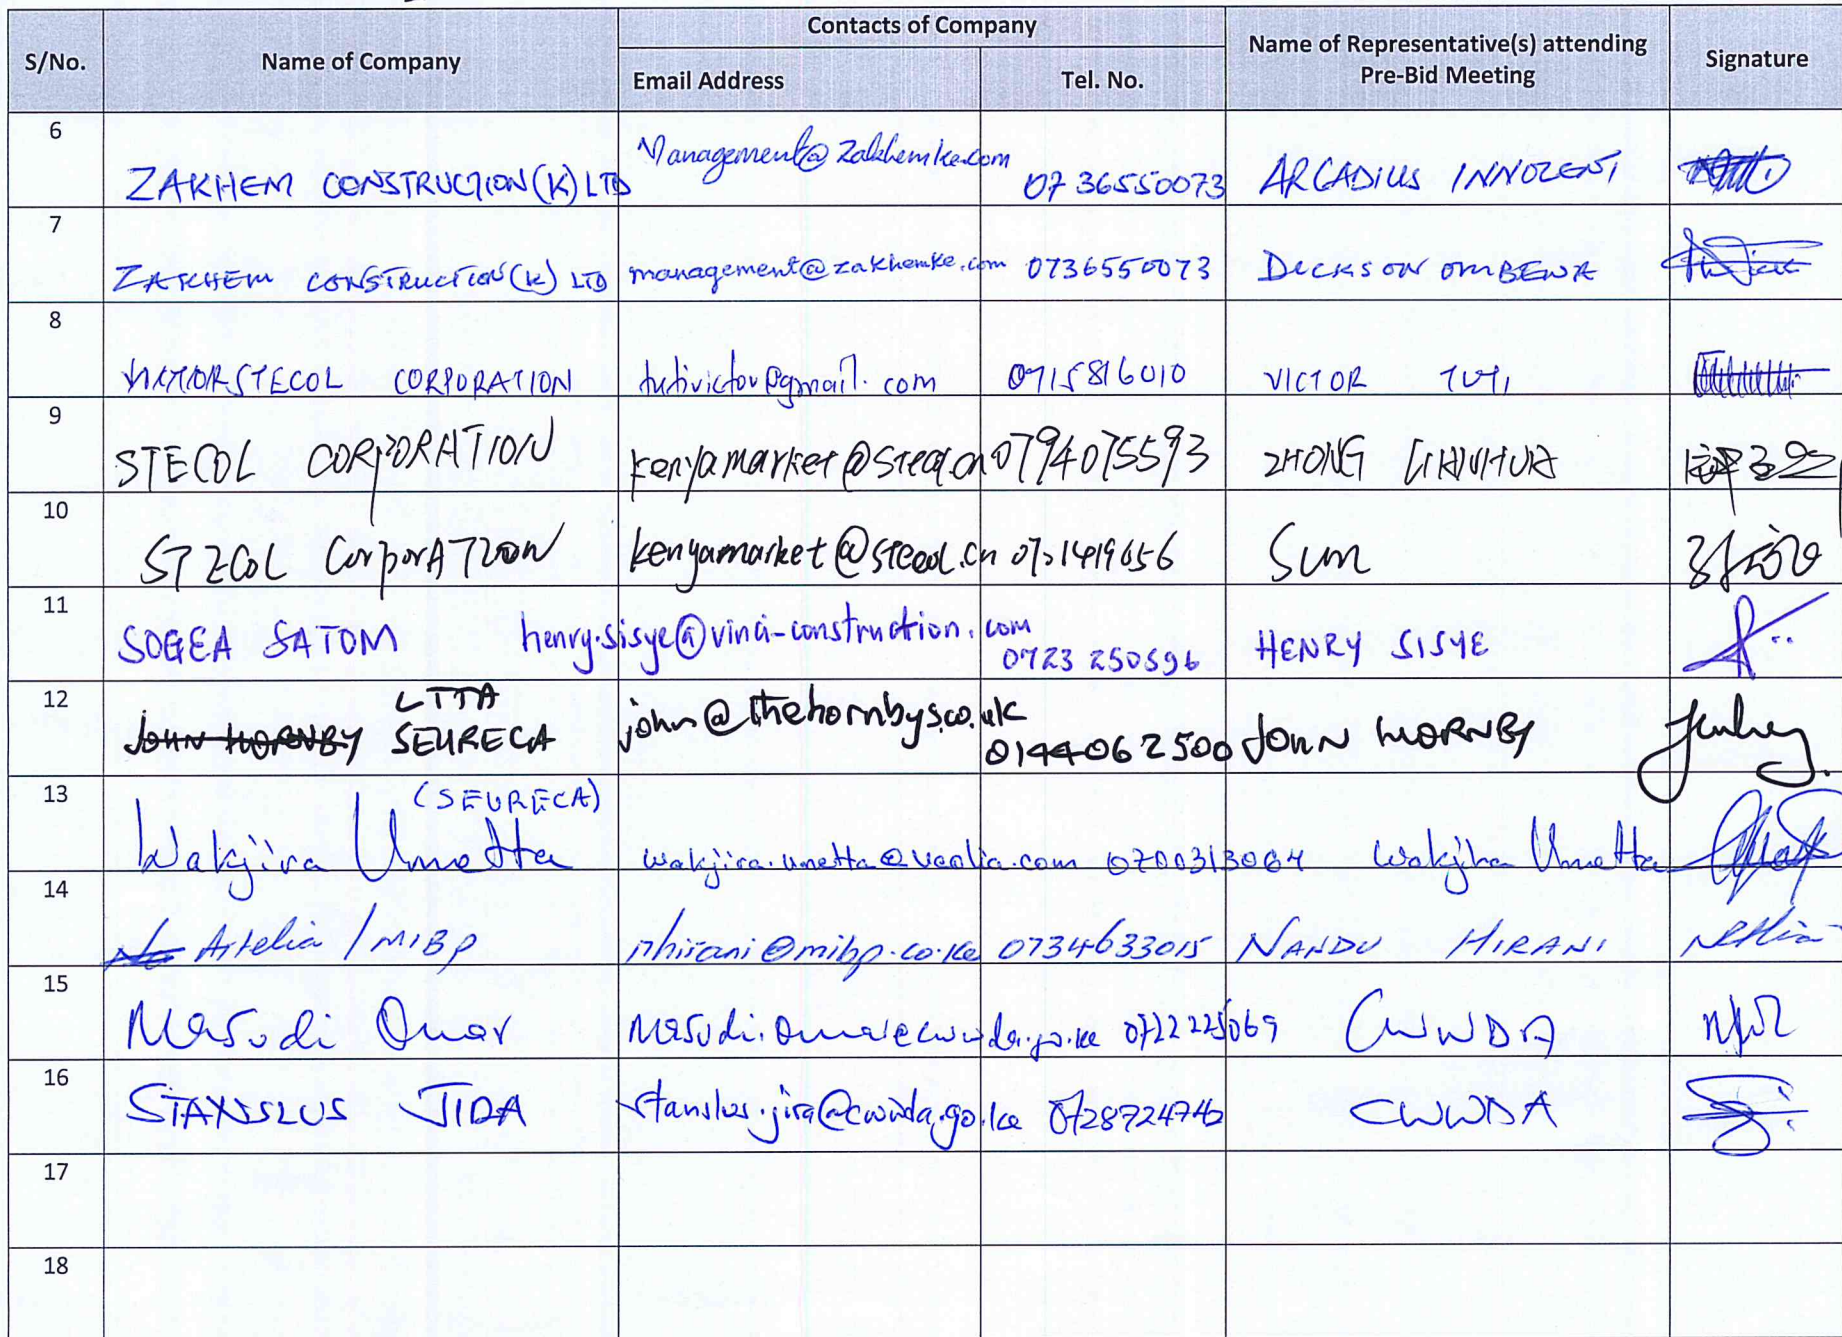 Contacts of Company
S/No. Name of Company Email Address Tel. No. Name of Representative(s) attending Pre-Bid Meeting Signature
6 ZAKHEM CONSTRUCTION(K) LTD Management@zakhemke.com 0736550073 ARCADIUS INNOZENT
7 ZAKHEM CONSTRUCTION(K) LTD management@zakhemke.com 0736550073 DICKSON OMBEWA
8 STECOL CORPORATION tutivictor@gmail.com 0715816010 VICTOR TUTI
9 STECOL CORPORATION kenyamarket@stecol.cn 0794075593 ZHONG
10 STECOL CorporATION kenyamarket@stecol.cn Sun
11 SOGEA SATOM henry.sisye@vinci-construction.com 0723 250596 HENRY SISYE
12 JOHN HORNBY LTTA SEURECA john@thehornbys.co.uk 0144062500 JOHN HORNBY
13 Wakjira Umetta (SEURECA) wakjira.umetta@veolia.com 0700313064 Wakjira Umetta
14 Artelia / MIBP nhirani@mibp.co.ke 0734633015 NANDU HIRANI
15 Masudi Omar Masudi.Omar@cwwda.go.ke 0722225069 CWWDA
16 STANSLUS JIDA 0728724742 CWWDA
17
18